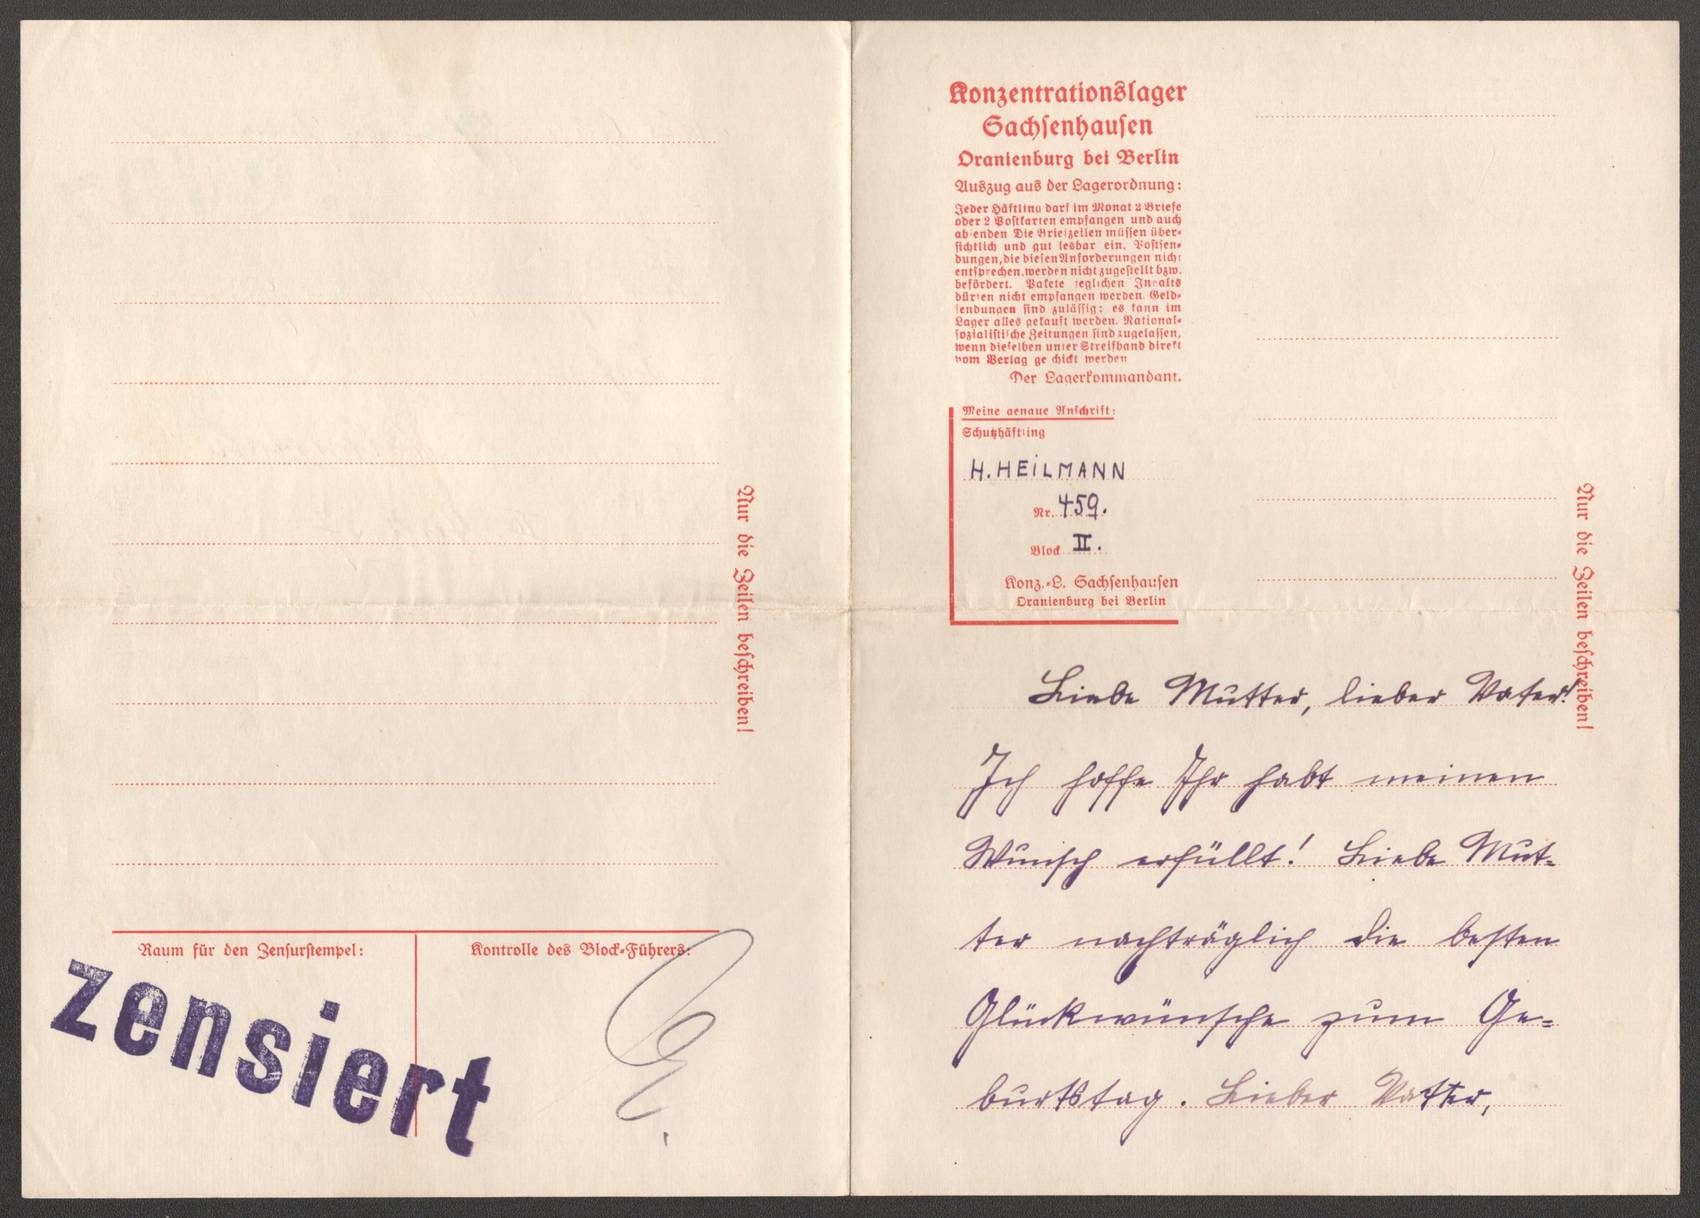 Nur die Zeilen beschreiben!
Raum für den Zensurstempel:
Kontrolle des Block-Führers:
zensiert
Konzentrationslager
Sachsenhausen
Oranienburg bei Berlin
Auszug aus der Lagerordnung:
Jeder Häftling darf im Monat 2 Briefe
oder 2 Postkarten empfangen und auch
ab enden Die Briefzeilen müssen über-
sichtlich und gut lesbar ein. Postsen-
dungen, die diesen Anforderungen nicht
entsprechen, werden nicht zugestellt bzw.
befördert. Pakete jeglichen Inhalts
dürfen nicht empfangen werden. Geld-
sendungen sind zulässig: es kann im
Lager alles gekauft werden. National-
sozialistische Zeitungen sind zugelassen,
wenn dieselben unter Streifband direkt
vom Verlag ge chickt werden
Der Lagerkommandant.
Meine genaue Anschrift:
Schutzhäftling
H. HEILMANN
Nr. 459.
Block II.
Konz.-L. Sachsenhausen
Oranienburg bei Berlin
Nur die Zeilen beschreiben!
Liebe Mutter, lieber Vater!
Ich hoffe Ihr habt meinen
Wunsch erfüllt! Liebe Mut-
ter nachträglich die besten
Glückwünsche zum Ge-
burtstag. Lieber Vatter,